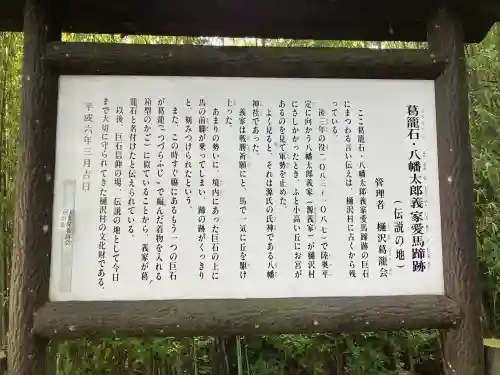 葛籠石・八幡太郎義家愛馬蹄跡
（伝説の地）
管理者　樋沢葛籠会
ここ葛籠石・八幡太郎義家愛馬蹄跡の巨石
にまつわる言い伝えは、樋沢村に古くから残
っている。
後三年の役（一〇八三―一〇八七）で陸奥平
定に向かう八幡太郎義家（源義家）が樋沢村
にさしかかったとき、ふと小高い丘にお宮が
あるのを見て軍勢を止めた。
よく見ると、それは源氏の氏神である八幡
神社であった。
義家は戦勝祈願にと、馬で一気に丘を駆け
上った。
あまりの勢いに、境内にあった巨石の上に
馬の前脚が乗ってしまい、蹄の跡がくっきり
と、刻みつけられたという。
また、この時すぐ脇にあるもう一つの巨石
が葛籠（つづらふじ）で編んだ着物を入れる
箱型のかご）に似ていることから、義家が葛
籠石と名付けたと伝えられている。
以後、巨石信仰の場、伝説の地として今日
まで大切に守られてきた樋沢村の文化財である。
平成六年三月吉日